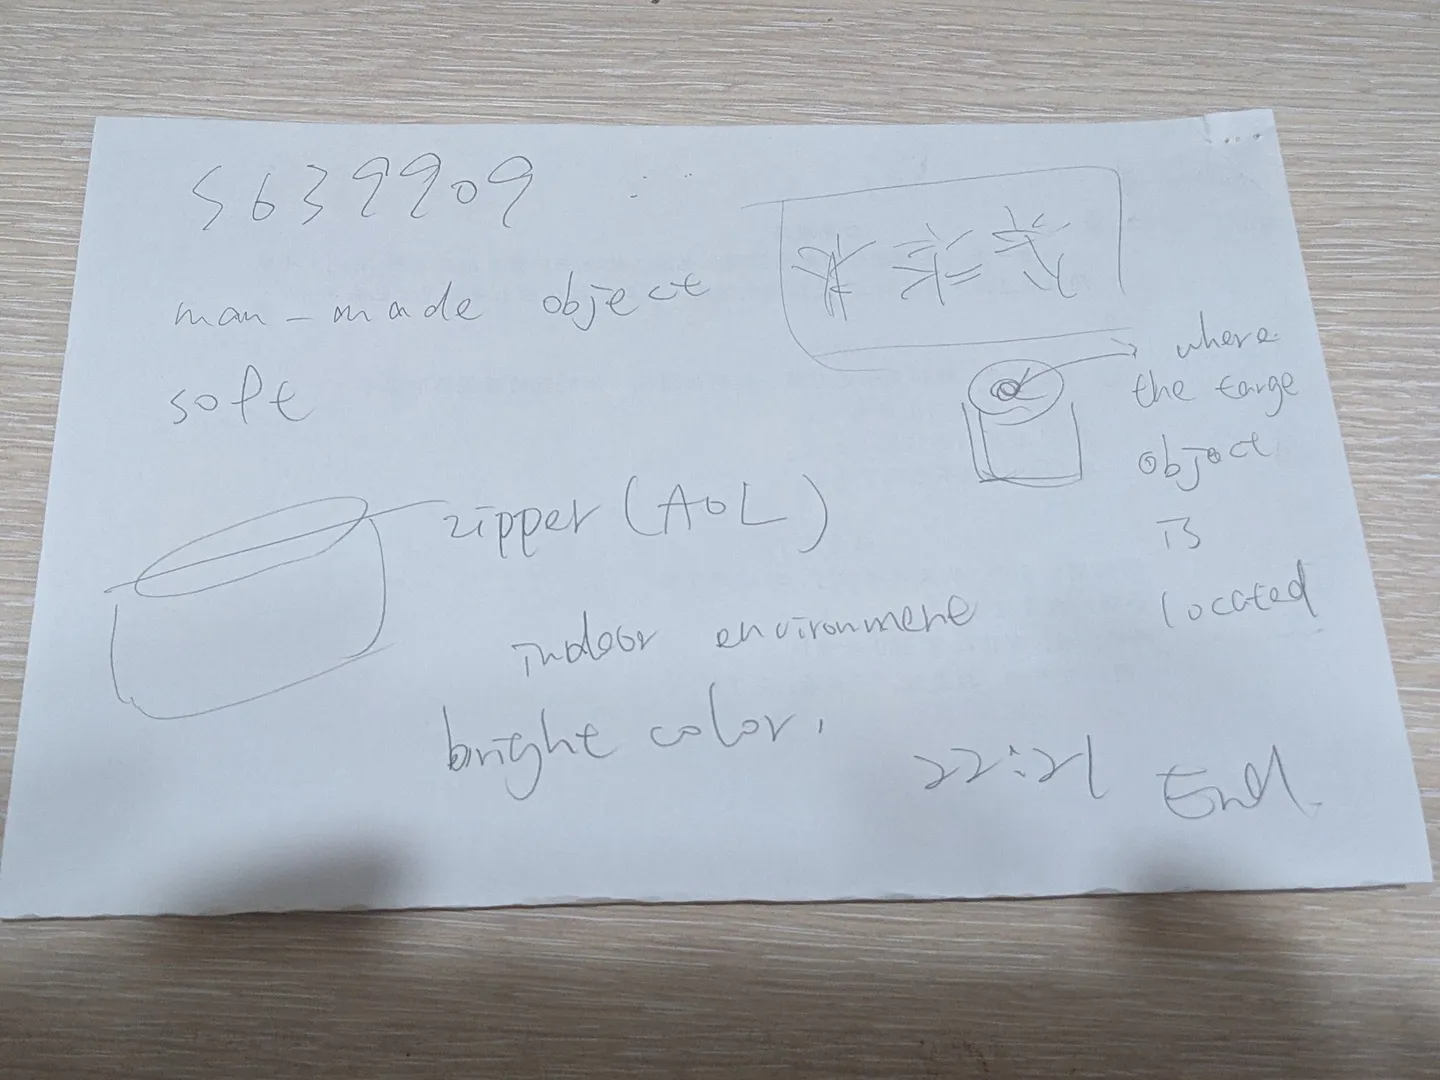 5639909
man-made object
soft
where
the targe
object
is
located
zipper (AOL)
indoor environment
bright color,
22:21 End